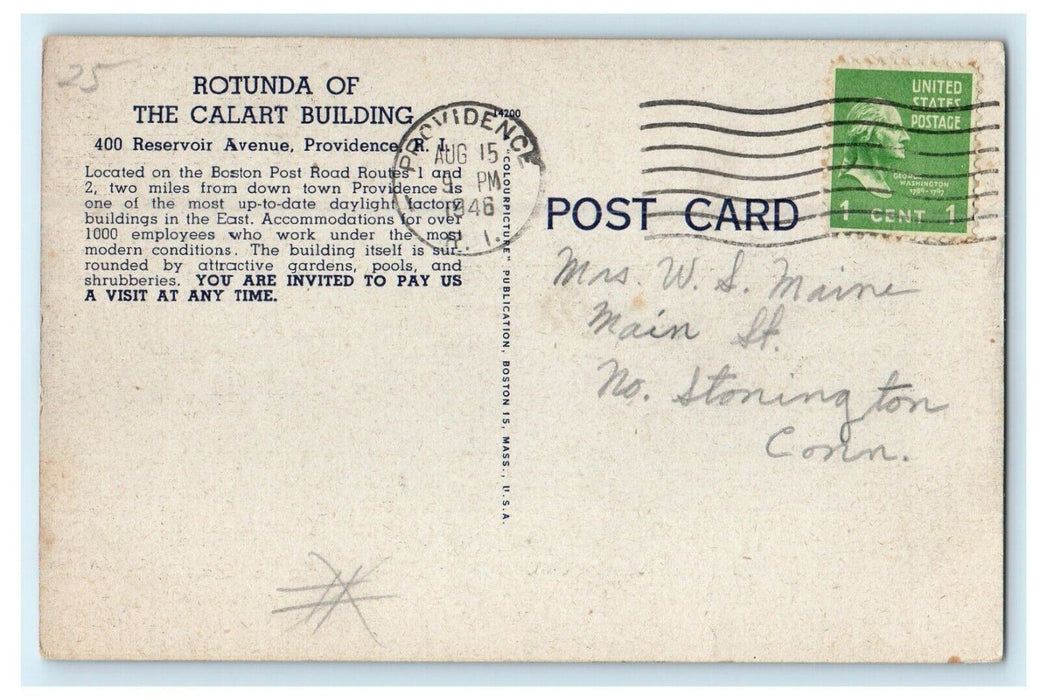 25
ROTUNDA OF
THE CALART BUILDING
400 Reservoir Avenue, Providence, R. I.
Located on the Boston Post Road Routes 1 and
2, two miles from down town Providence is
one of the most up-to-date daylight factory
buildings in the East. Accommodations for over
1000 employees who work under the most
modern conditions. The building itself is sur-
rounded by attractive gardens, pools, and
shrubberies. YOU ARE INVITED TO PAY US
A VISIT AT ANY TIME.
14200
"COLOURPICTURE" PUBLICATION, BOSTON 15, MASS., U.S.A.
PROVIDENCE
AUG 15
9 PM
1946
R. I.
UNITED
STATES
POSTAGE
GEORGE
WASHINGTON
1789-1797
1 CENT 1
POST CARD
Mrs. W. S. Maine
Main St.
No. Stonington
Conn.